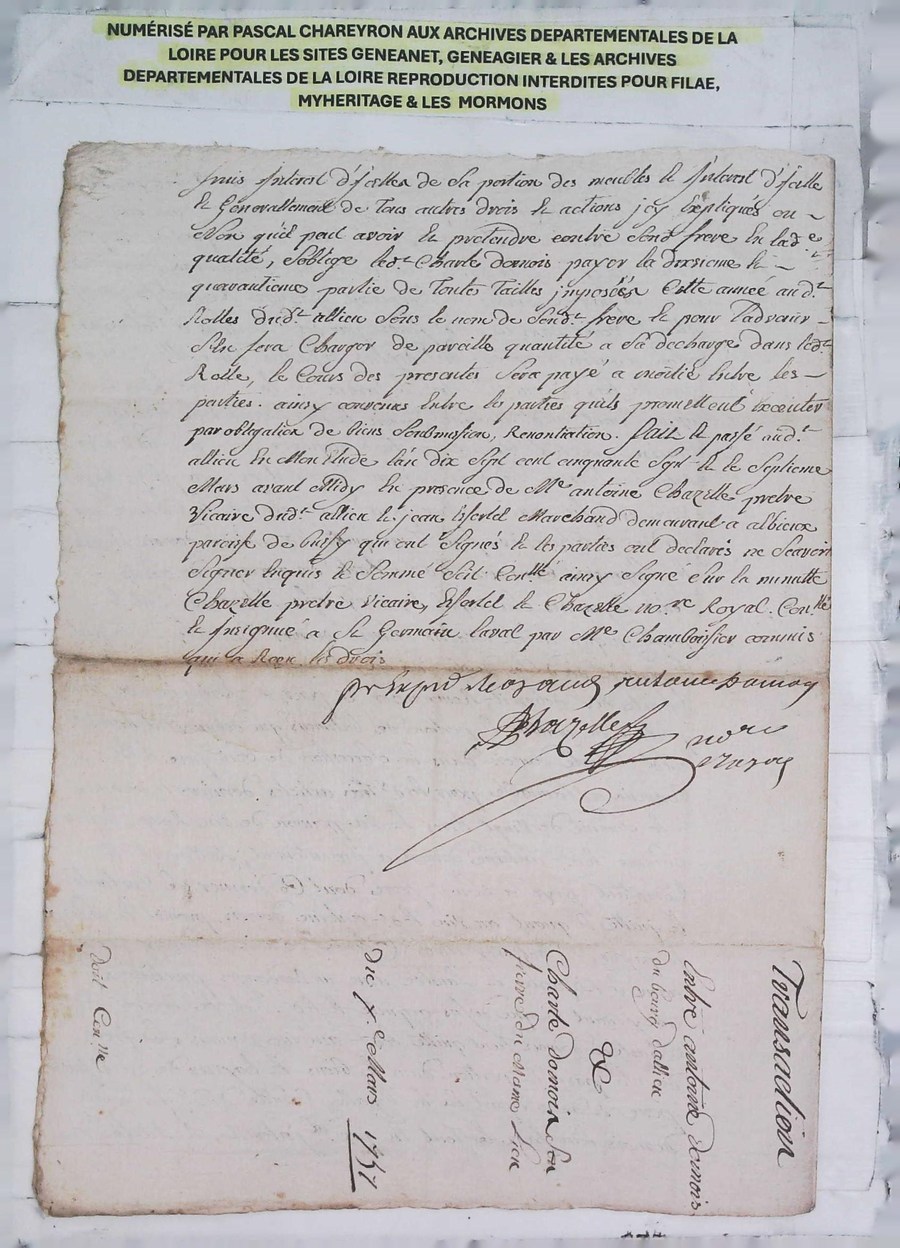 NUMÉRISÉ PAR PASCAL CHAREYRON AUX ARCHIVES DEPARTEMENTALES DE LA
LOIRE POUR LES SITES GENEANET, GENEAGIER & LES ARCHIVES
DEPARTEMENTALES DE LA LOIRE REPRODUCTION INTERDITES POUR FILAE,
MYHERITAGE & LES MORMONS
Interest d'icelles de Sa portion des meubles & Interest d'icelle
& Generallement de tous autres drois & actions icy Expliqués ou
Non qu'il peut avoir & pretendre contre Sond. frere En lad.e
qualité, S'oblige led.t Charle damois payer la dixsieme &
quarantieme partie de toutes tailles imposées Cette année aud.t
Rolles dud.t allieu Sous le nom de Sond.t frere & pour l'advenir
S'en fera Charger de pareille quantité a Sa decharge dans led.t
Rolle, le Cours des presentes Sera payé a moitié Entre les
parties. ainsy convenus Entre les parties qu'ils promettent Executer
par obligation de biens Soubmission, Renontiation. fait & passé aud.t
allieu En Mon Etude l'an dix Sept cent cinquante Sept & le Septieme
Mars avant Midy En presence de M.e antoine Chazelle prebre
Vicaire dud.t allieu & jean Marchand demeurant a albieux
paroisse de bussy qui ont Signés & les parties ont declarés ne Scavoir
Signer Enquis & Sommé Soit Con.llé ainsy Signé Sur la minutte
Chazelle prebre Vicaire, & Chazelle no.re Royal. Con.llé
& Insignué a St Germain laval par M.e commis
qui a Reçu les droits
antoine damoy
Chazelle no.re
Royal
Transaction
Entre antoine damois
du bourg dallieu
&
Charle damois Son
frere du Mame Lieu
du 7.e Mars 1757
Doit Con.lle